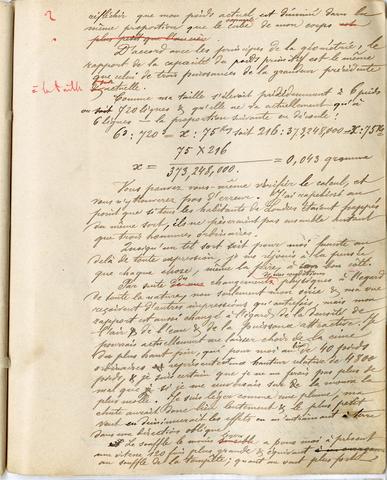 réfléchir que mon poids actuel est diminué dans la
même proportion que le cube de mon corps est
plus petit que
D'accord avec les principes de la géométrie, le
rapport de la capacité du poids est le même
que celui de trois puissances de la grandeur précédente
à la taille actuelle.
Comme ma taille s'élevait précédemment à 6 pieds
ou soit 720 lignes & qu'elle ne va actuellement qu'à
6 lignes — la proportion suivante en découle :
6³ : 720³ = x : 75 Kg soit 216 : 373,248,000 = x : 75 Kg
75 X 216
x = = 0,043 gramme
373,248,000.
Vous pouvez vous-même vérifier le calcul, et
vous n'y trouverez pas d'erreur.
pond que si tous les habitants de Londres étaient
du même sort, ils ne pèseraient pas ensemble autant
que trois hommes ordinaires.
Quoiqu'un tel sort soit pour moi funeste au
delà de toute expression, je me réjouis à la pensée
que chaque chose, même la pire, a son bon côté.
Par suite changements physiques à l'égard
de toute la nature, non seulement mon ouïe & ma vue
reçoivent d'autres impressions qu'autrefois, mais mon
rapport est aussi changé à l'égard de la densité de
l'air & de l'eau & de la puissance attractive. Je
pourrais actuellement me laisser choir de la cime
du plus haut pin, que pour moi au de 40 pieds
ordinaires représenterait une hauteur relative de 4800
pieds, & je suis certain que je ne me ferais pas plus de
mal que si je me sur de la mousse la
plus molle. Je suis léger comme une plume, ma
chute aurait donc lieu lentement & le plus petit
vent en diminuerait les effets en m'entrainant à terre
dans une direction oblique.
Le souffle le moins sensible a pour moi à présent
une vitesse 120 fois plus grande & équivaut
au souffle de la tempête, quant au vent plus fort